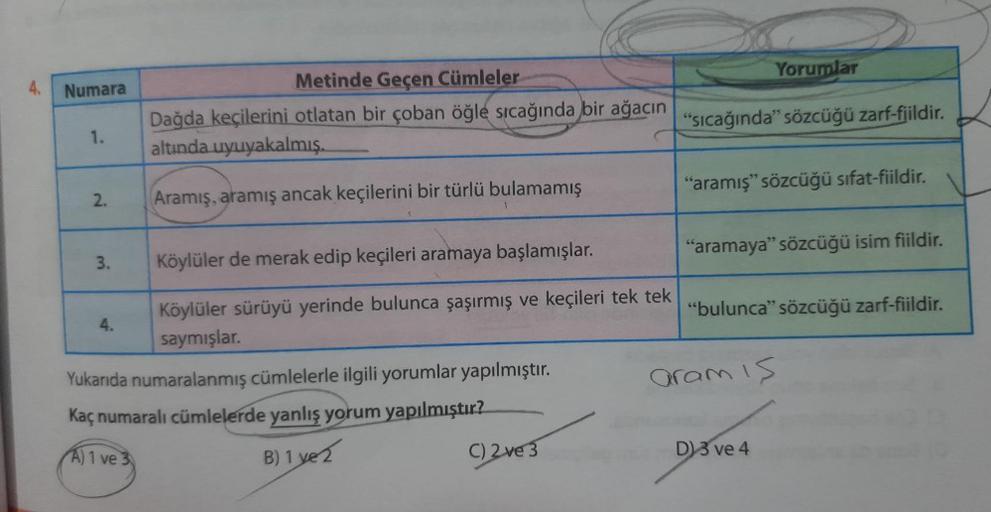 4. Numara Metinde Geçen Cümleler Yorumlar
1. Dağda keçilerini otlatan bir çoban öğle sıcağında bir ağacın
altında uyuyakalmış.
"sıcağında" sözcüğü zarf-fiildir.
2. Aramış, aramış ancak keçilerini bir türlü bulamamış
"aramış" sözcüğü sıfat-fiildir.
3. Köylüler de merak edip keçileri aramaya başlamışlar.
"aramaya" sözcüğü isim fiildir.
4. Köylüler sürüyü yerinde bulunca şaşırmış ve keçileri tek tek
saymışlar.
"bulunca" sözcüğü zarf-fiildir.
Yukarıda numaralanmış cümlelerle ilgili yorumlar yapılmıştır.
aramış
Kaç numaralı cümlelerde yanlış yorum yapılmıştır?
A) 1 ve 3 B) 1 ve 2 C) 2 ve 3 D) 3 ve 4